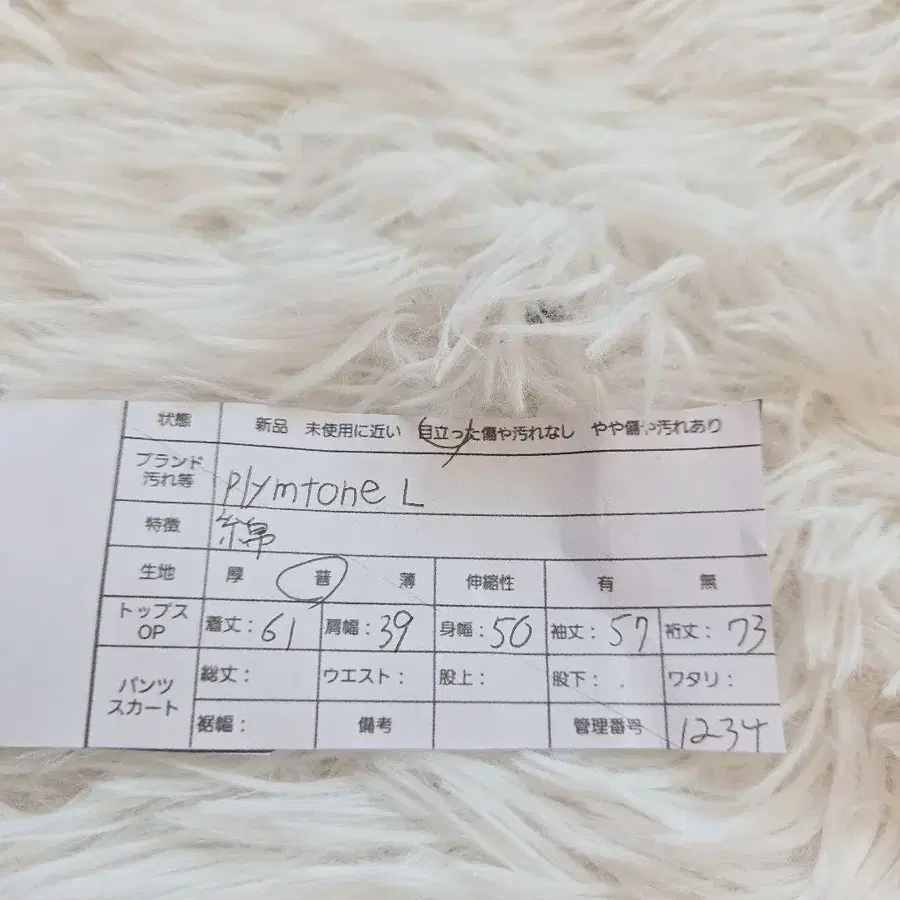 状態 新品 未使用に近い 目立った傷や汚れなし やや傷や汚れあり
ブランド
汚れ等
plymtone L
特徴 綿
生地 厚 普 薄 伸縮性 有 無
トップス
OP
着丈：61 肩幅：39 身幅：50 袖丈：57 裄丈：73
パンツ
スカート
総丈： ウエスト： 股上： 股下： ワタリ：
裾幅： 備考 管理番号 1234